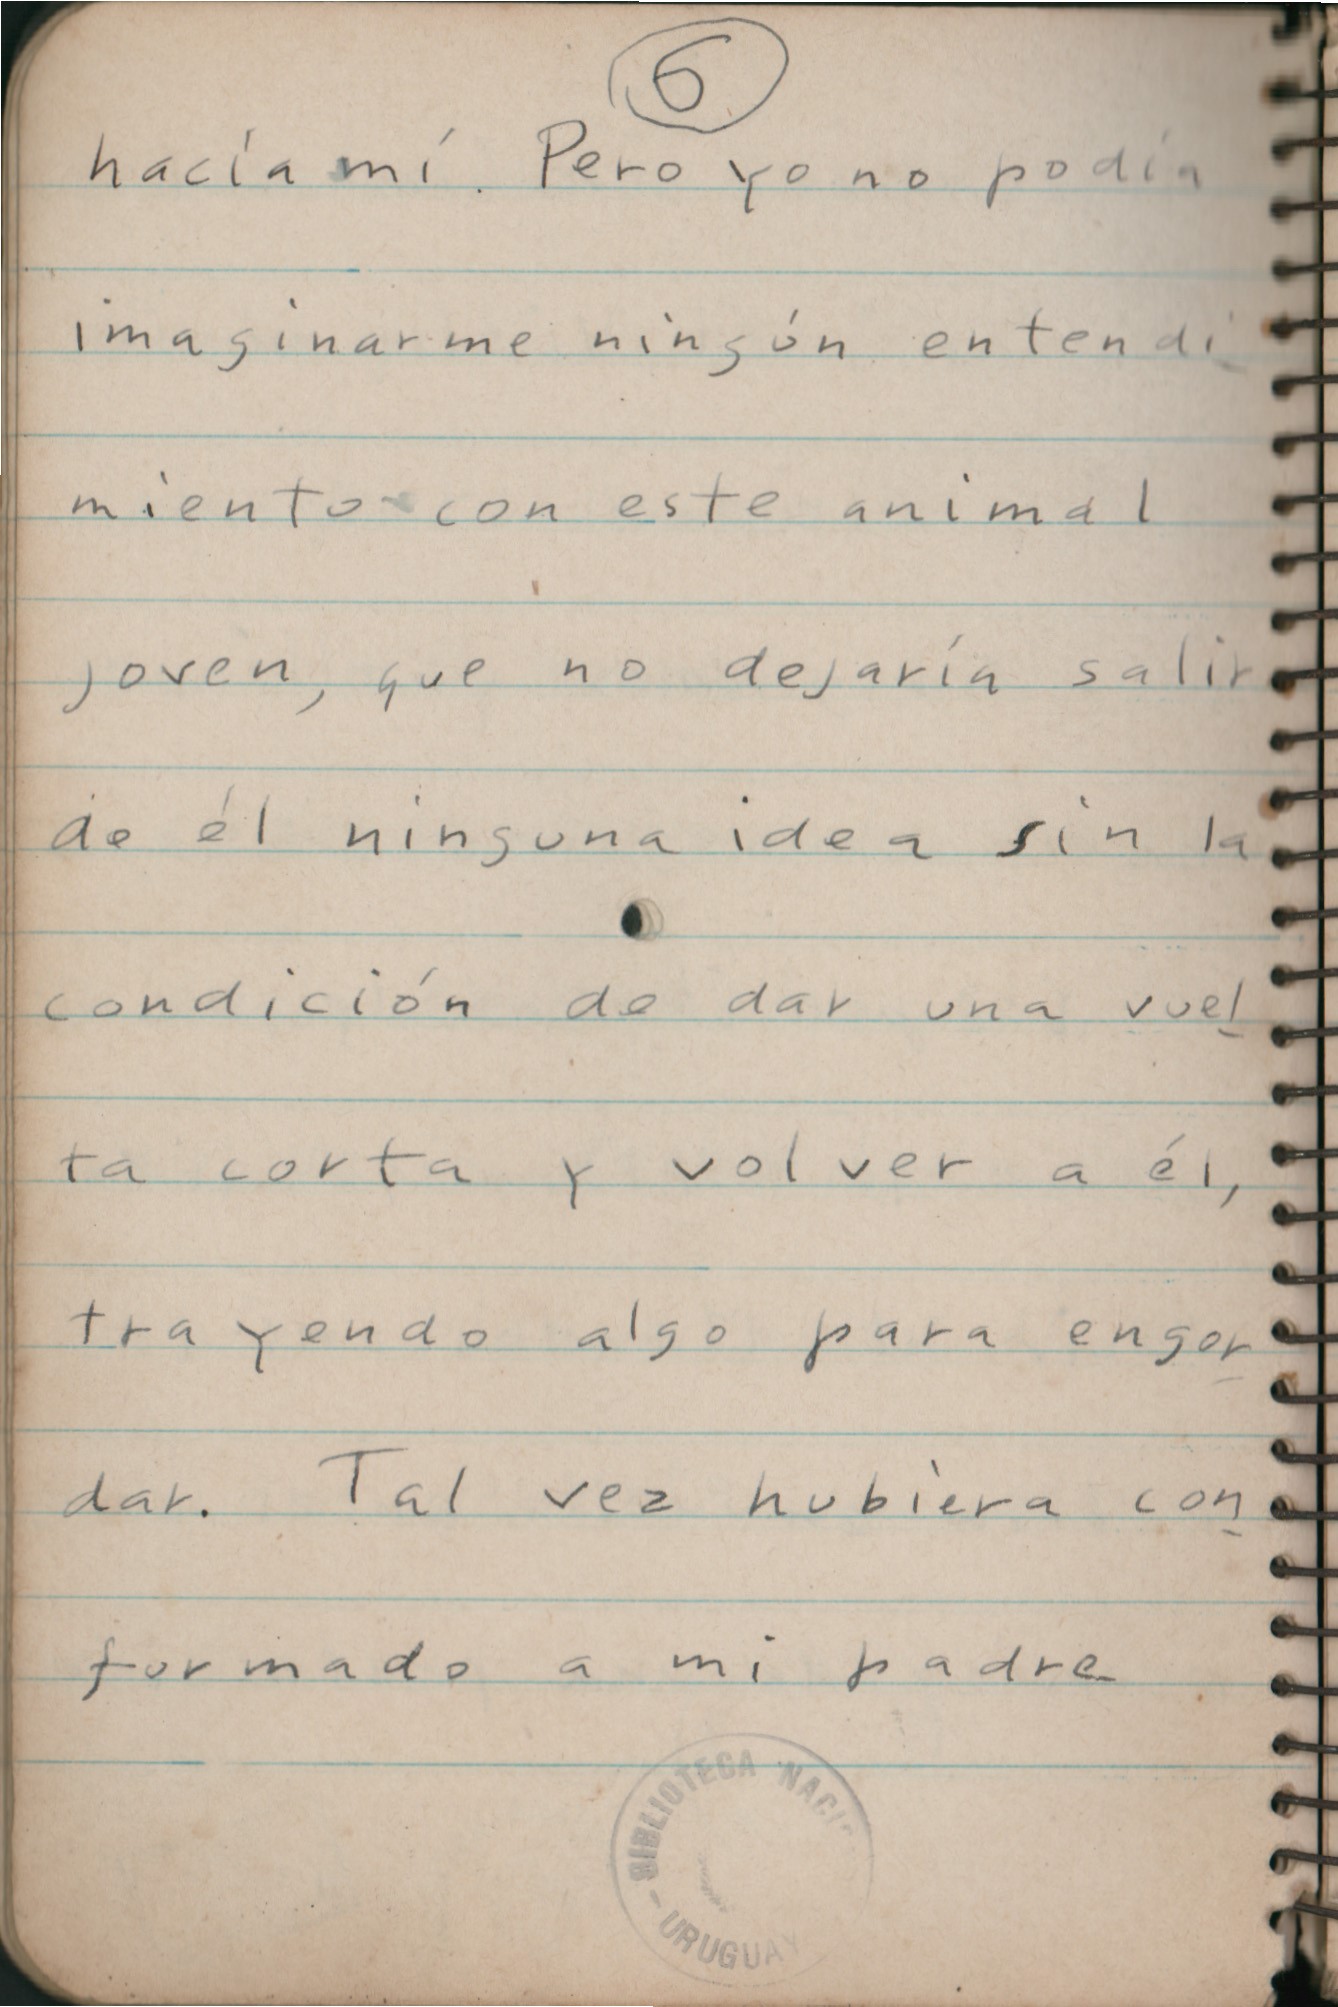 6
hacía mí. Pero yo no podía
imaginarme ningún entendi
miento con este animal
joven, que no dejaría salir
de él ninguna idea sin la
condición de dar una vuel
ta corta y volver a él,
trayendo algo para engor
dar. Tal vez hubiera con
formado a mi padre
BIBLIOTECA NACI
URUGUAY